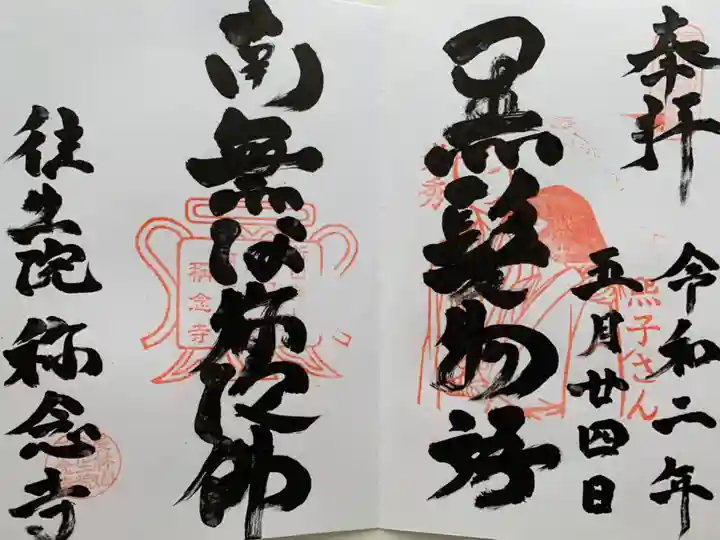 奉拝
令和二年
五月廿四日
黒髪物語
熙子さん
秀
南無阿弥陀仏
稱念寺
往生院 称念寺